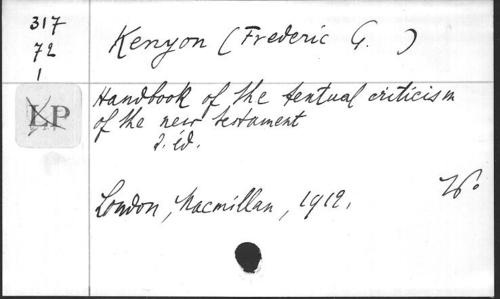 317
72
1
Kenyon (Frederic G. )
LP
Handbook of the textual criticism
of the new testament
2. éd.
London, Macmillan, 1912.